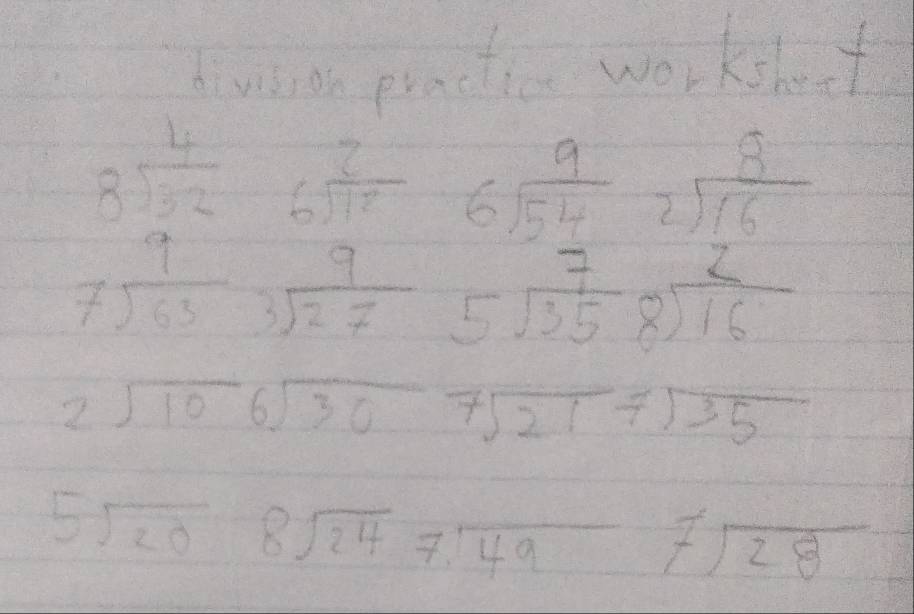 division practice worksheet
4 2 9 8
8)32 6)12 6)54 2)16
9 9 7 2
7)63 3)27 5)35 8)16
2)10 6)30 7)21 7)35
5)20 8)24 7)49 7)28